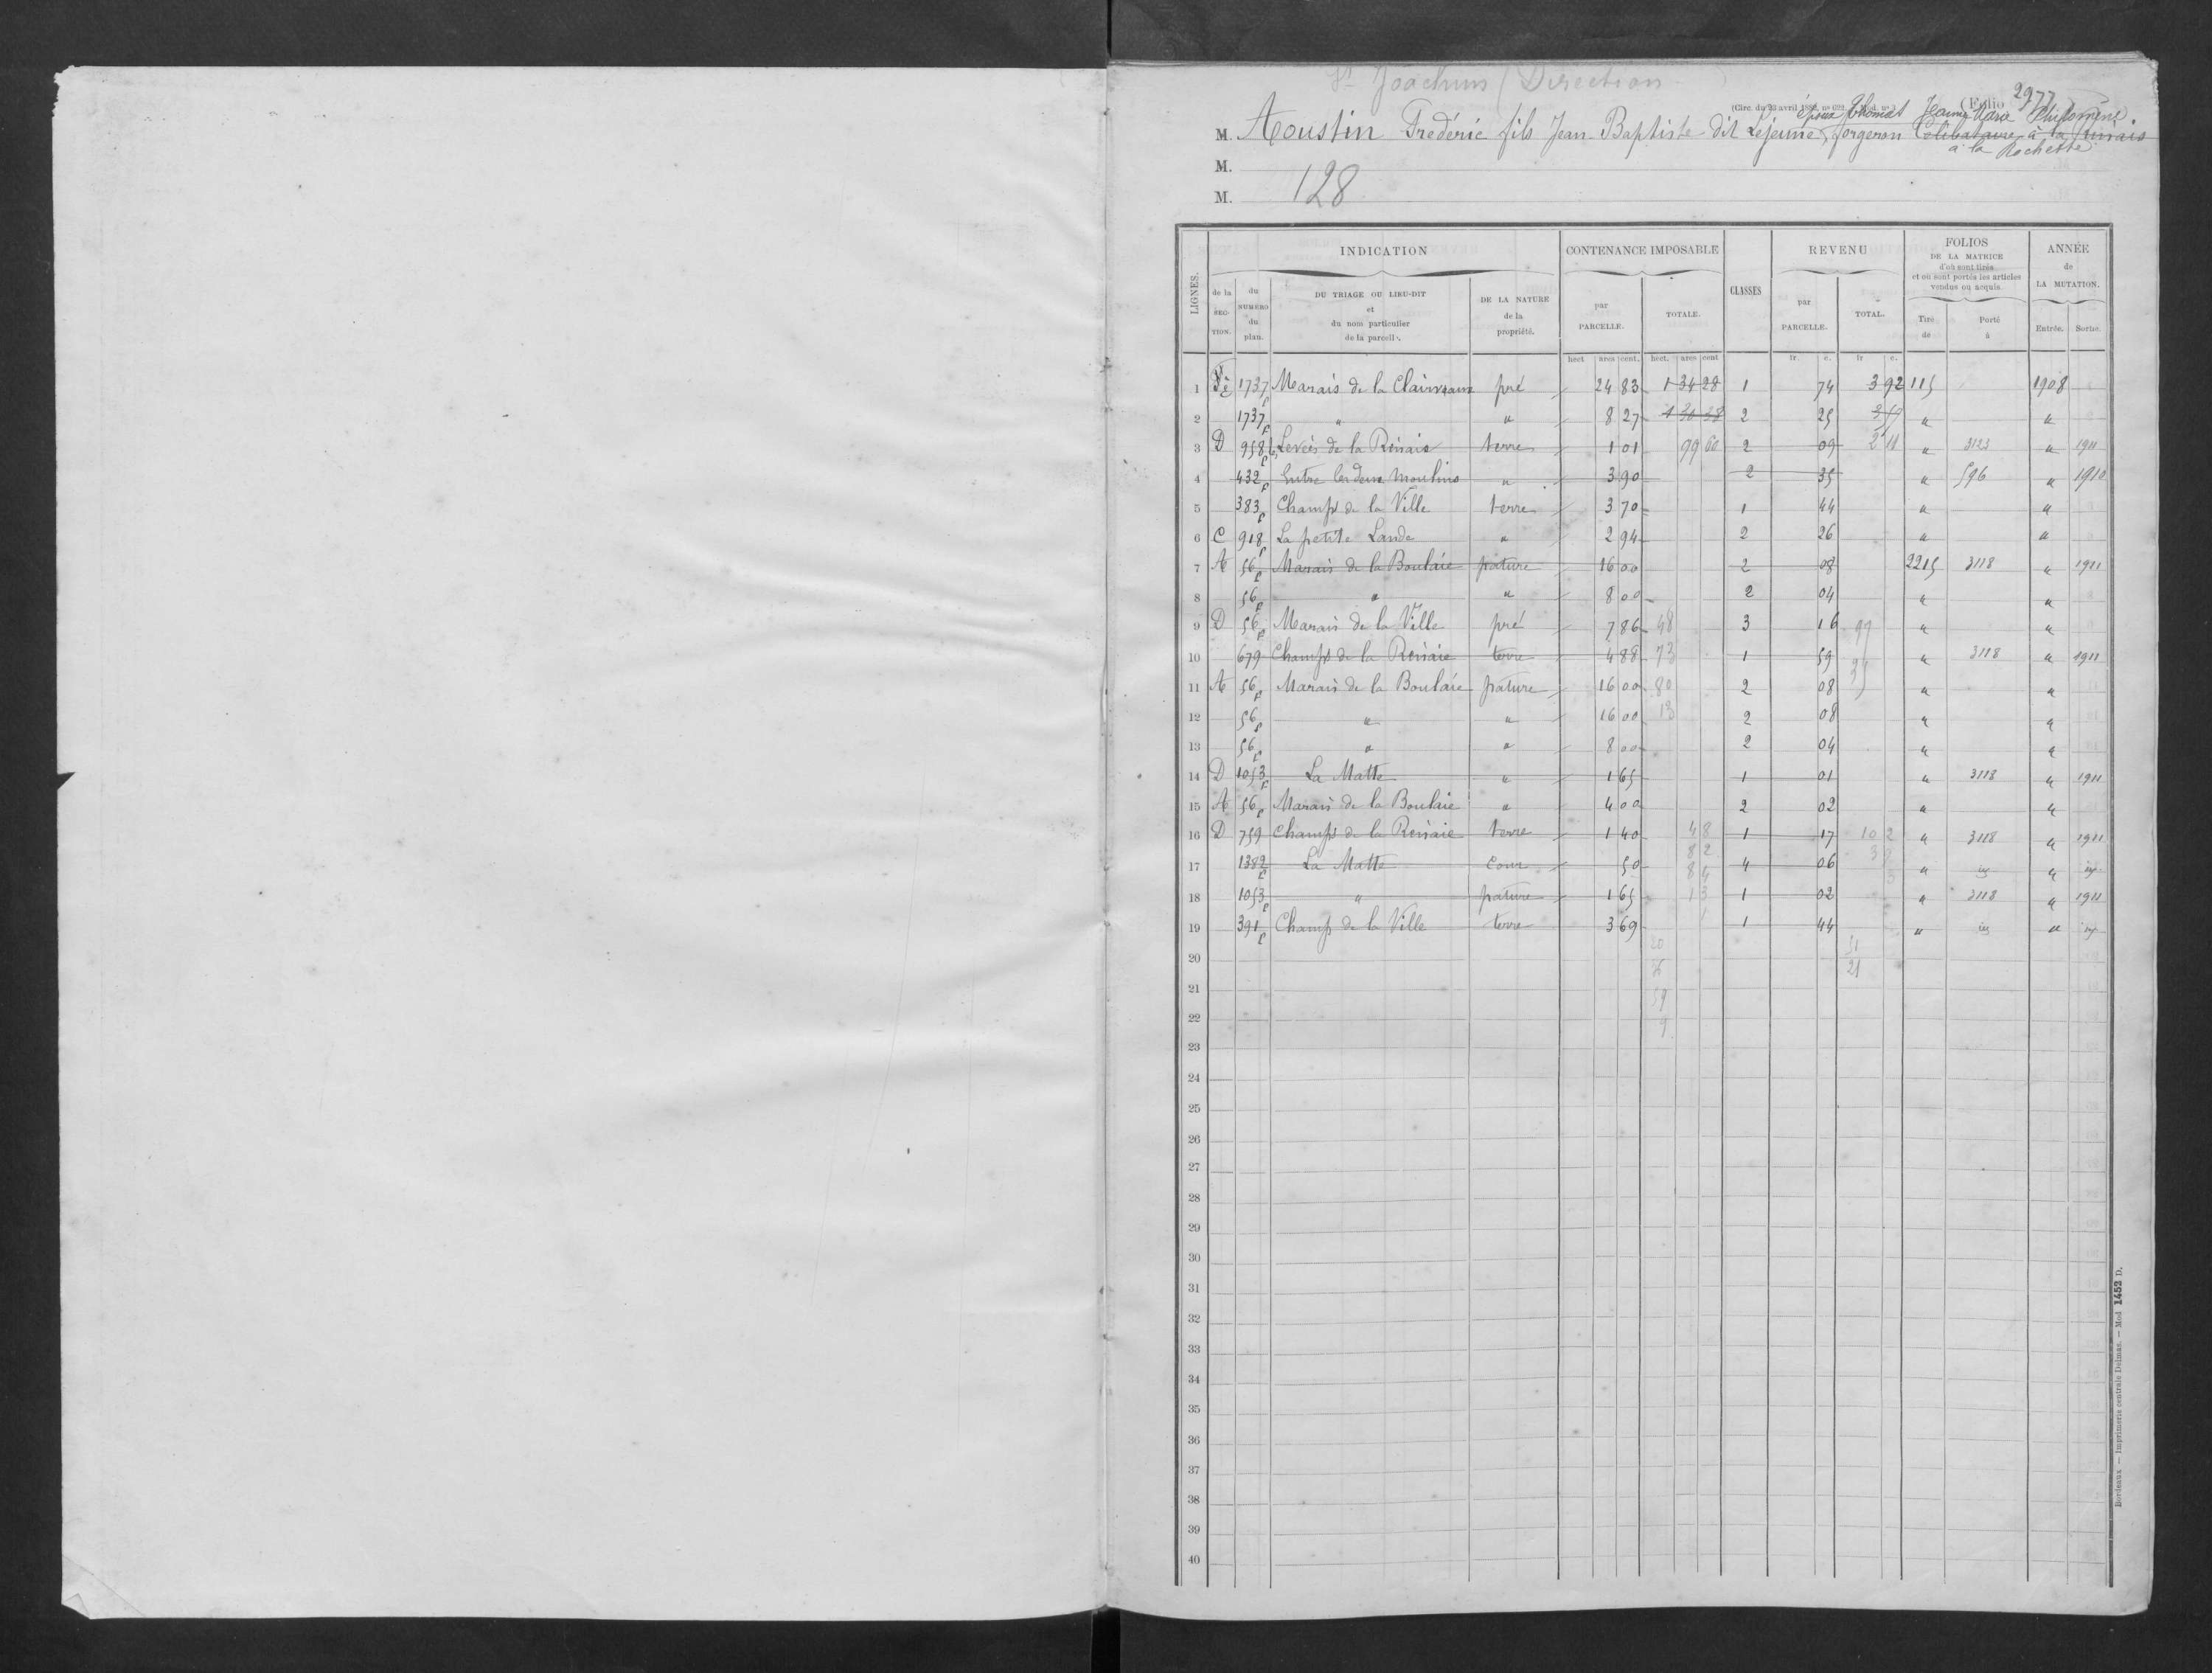 St Joachim (Direction)
(Circ. du 23 avril 1882, nº 692. Mod. nº 3.) (Folio 2977
époux Thomas Jeanne Marie Philomène
M. Aoustin Frédéric fils Jean Baptiste dit Lejeune, forgeron Célibataire à la Rinais
à la Rochette
M.
M. 128
LIGNES. INDICATION CONTENANCE IMPOSABLE CLASSES REVENU FOLIOS DE LA MATRICE d'où sont tirés et où sont portés les articles vendus ou acquis. ANNÉE de LA MUTATION.
de la SECTION. du NUMÉRO du plan. DU TRIAGE OU LIEU-DIT et du nom particulier de la parcelle. DE LA NATURE de la propriété. par PARCELLE. TOTALE. par PARCELLE. TOTAL. Tiré de Porté à Entrée. Sortie.
hect. ares cent. hect. ares cent. fr. c. fr. c.
1 1737 Marais de la Clairvaux pré 24 83 1 34 28 1 74 3 92 115 1908
2 1737 " " 8 27 1 30 38 2 25 3 57 " "
3 D 958 Levées de la Rinais terre 1 01 99 60 2 09 2 11 " 3123 " 1911
4 432 Entre les deux Moulins " 3 90 2 35 " 596 " 1910
5 383 Champs de la Ville terre 3 70 1 44 " "
6 C 918 La petite Lande " 2 94 2 26 " "
7 A 56 Marais de la Boulaie pature 16 00 2 08 2215 3118 " 1911
8 56 " " 8 00 2 04 " "
9 D 56 Marais de la Ville pré 7 86 48 3 16 " "
10 679 Champs de la Rinaie terre 4 88 73 1 59 " 3118 " 1911
11 A 56 Marais de la Boulaie pature 16 00 80 2 08 " "
12 56 " " 16 00 13 2 08 " "
13 56 " " 8 00 2 04 " "
14 D 1053 La Matte " 1 65 1 01 " 3118 " 1911
15 A 56 Marais de la Boulaie " 4 00 2 02 " "
16 D 759 Champs de la Rinaie terre 1 40 48 1 17 10 2 " 3118 " 1911
17 1382 La Matte Cour 50 82 4 06 " "
18 1053 " pature 1 65 13 1 02 " 3118 " 1911
19 391 Champs de la Ville terre 3 69 1 44 " "
20
21
22
23
24
25
26
27
28
29
30
31
32
33
34
35
36
37
38
39
40
Bordeaux. — Imprimerie centrale Delmas. — Mod 1452 D.